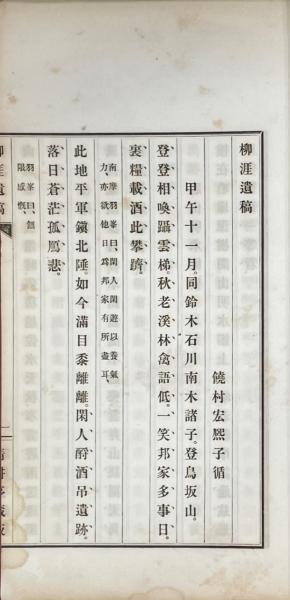 柳涯遺稿
饒村宏熙子循
甲午十一月。同鈴木石川南木諸子。登鳥坂山。
登登相喚躡雲梯。秋老溪林禽語低。一笑邦家多事日。
裹糧載酒此攀躋。
南摩羽峯曰、閑人閑遊以養氣
力、亦欲他日爲邦家有所盡耳、
此地平軍鎭北陲。如今滿目黍離離。閑人酹酒吊遺跡。
落日蒼茫孤鴈悲。
羽峯曰、無
限感慨、
柳涯遺稿
一